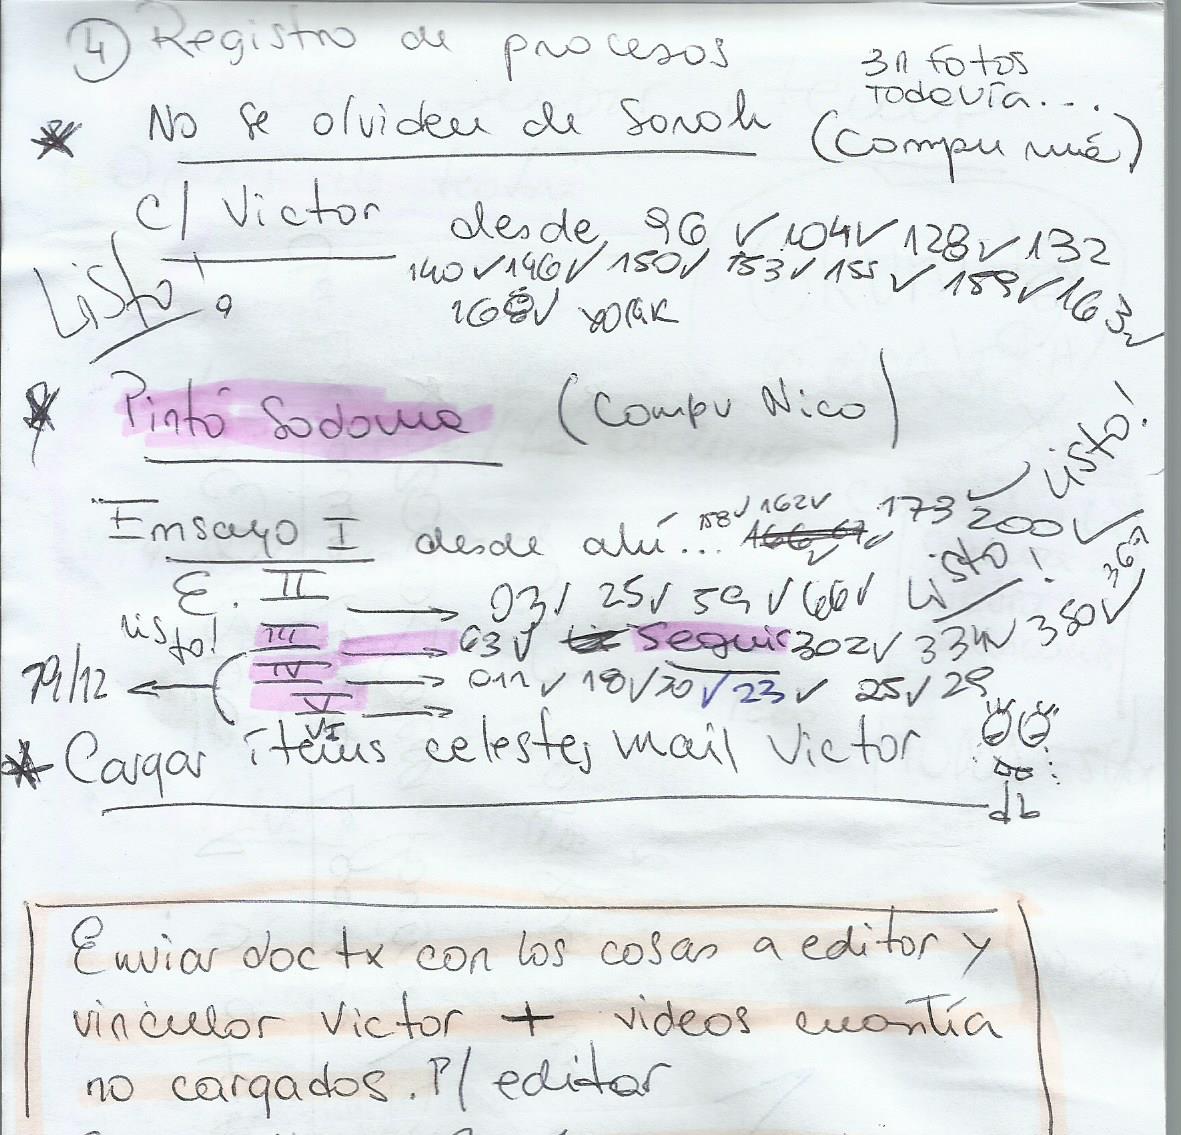 4 Registro de procesos
31 fotos
todavía...
* No se olviden de Sarah (Compu mía)
c/ Victor desde 96 ✓ 104 ✓ 128 ✓ 132
Listo! 140 ✓ 146 ✓ 150 ✓ 153 ✓ 155 ✓ 159 ✓ 163 ✓
168 ✓
* Pintó Sodoma (Compu Nico)
Listo!
Ensayo I desde ahí... 158 ✓ 162 ✓ 173 ✓ 200 ✓
E. II → 03 ✓ 25 ✓ 59 ✓ 66 ✓ Listo!
Listo! III → 63 ✓ Seguir 302 ✓ 334 ✓ 350 ✓ 367
IV → 011 ✓ 18 ✓ 20 ✓ 23 ✓ 25 ✓ 29
19/12 ← V →
VI
* Cargar ítems celestes, mail Victor
Enviar doc tx con las cosas a editor y
vincular Victor + videos cuantía
no cargados. P/ editar